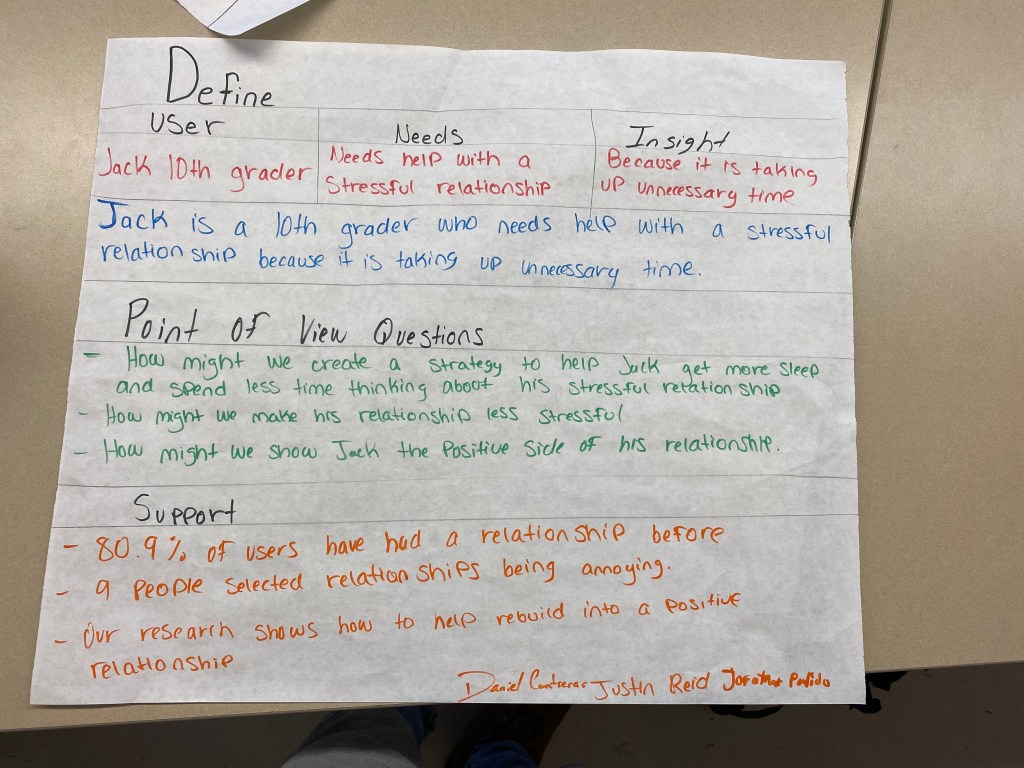 Define
User Needs Insight
Jack 10th grader Needs help with a Because it is taking
Stressful relationship up unnecessary time
Jack is a 10th grader who needs help with a stressful
relationship because it is taking up unnecessary time.
Point of View Questions
- How might we create a strategy to help Jack get more sleep
and spend less time thinking about his stressful relationship
- How might we make his relationship less stressful
- How might we show Jack the Positive side of his relationship.
Support
- 80.9% of users have had a relationship before
- 9 People Selected relationships being annoying.
- Our research shows how to help rebuild into a positive
relationship
Daniel Contreras Justin Reid